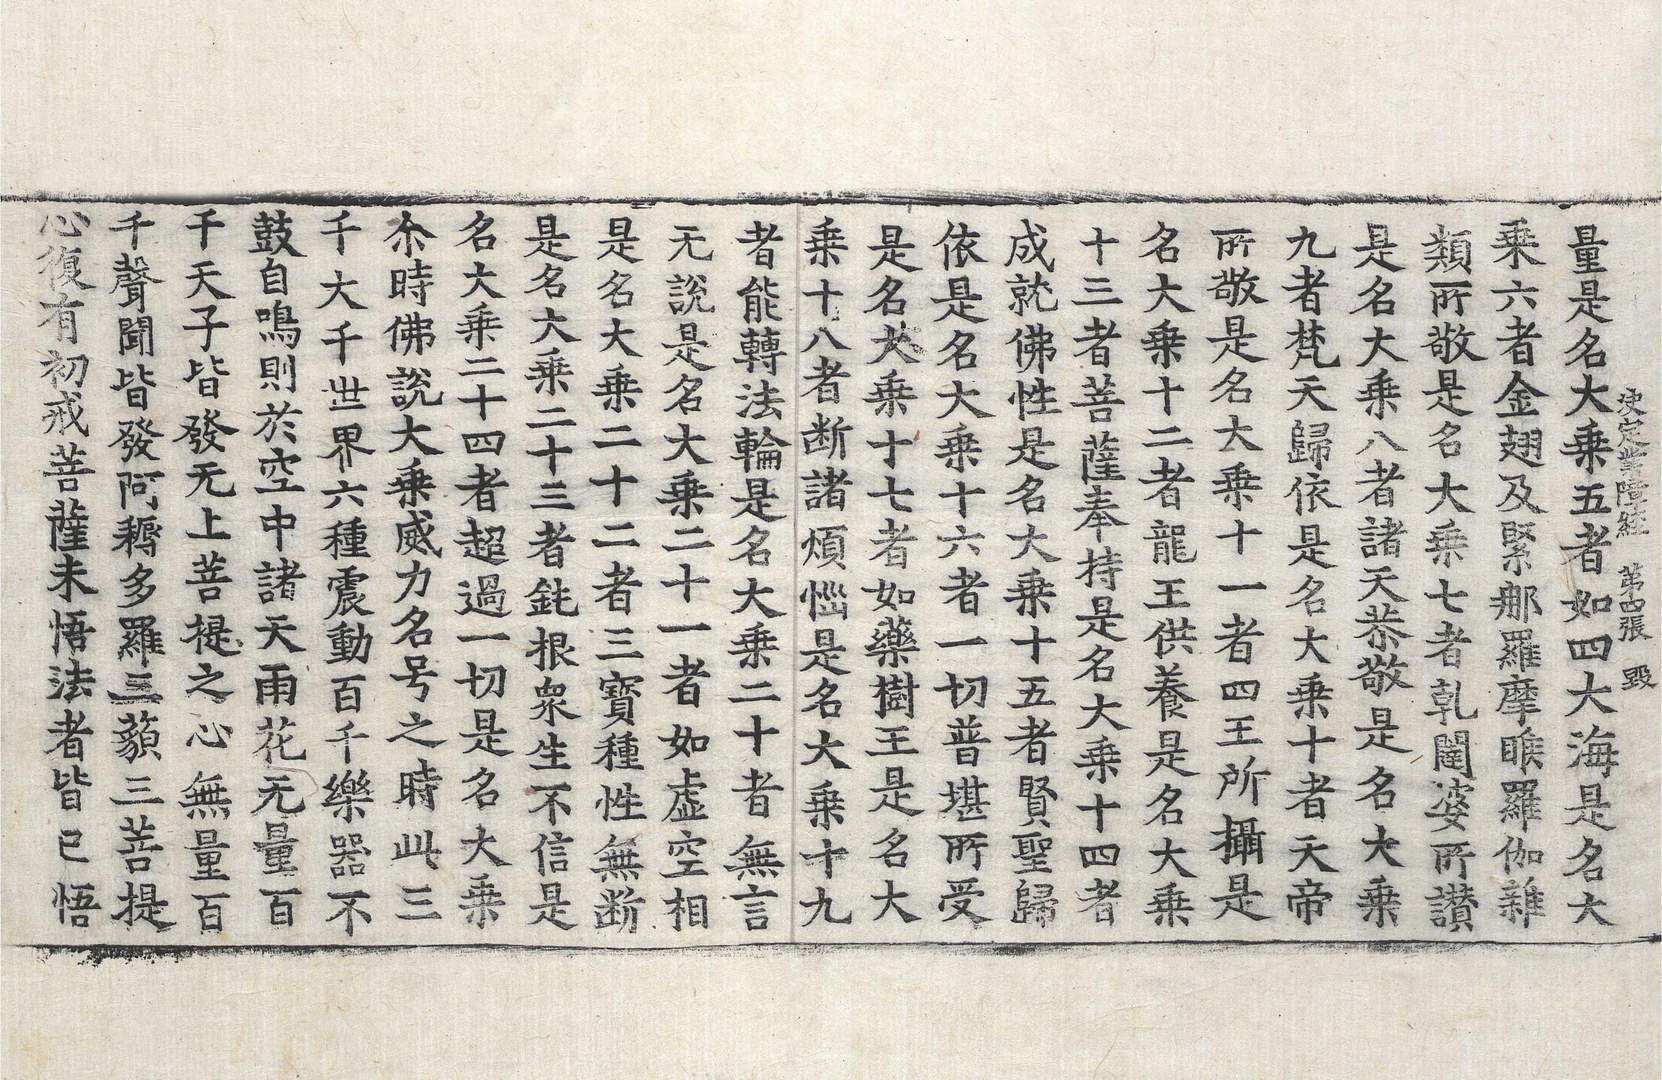 决定業障経 第四張 毀
量是名大乗五者如四大海是名大
乗六者金翅及緊那羅摩睺羅伽雜
類所敬是名大乗七者乹闥婆所讃
是名大乗八者諸天恭敬是名大乗
九者梵天歸依是名大乗十者天帝
所敬是名大乗十一者四王所攝是
名大乗十二者龍王供養是名大乗
十三者菩薩奉持是名大乗十四者
成就佛性是名大乗十五者賢聖歸
依是名大乗十六者一切普堪所受
是名大乗十七者如藥樹王是名大
乗十八者断諸煩惱是名大乗十九
者能轉法輪是名大乗二十者無言
无説是名大乗二十一者如虚空相
是名大乗二十二者三寶種性無断
是名大乗二十三者鈍根衆生不信是
名大乗二十四者超過一切是名大乗
尒時佛說大乗威力名号之時此三
千大千世界六種震動百千樂器不
鼓自鳴則於空中諸天雨花无量百
千天子皆發无上菩提之心無量百
千聲聞皆發阿耨多羅三藐三菩提
心復有初戒菩薩未悟法者皆已悟